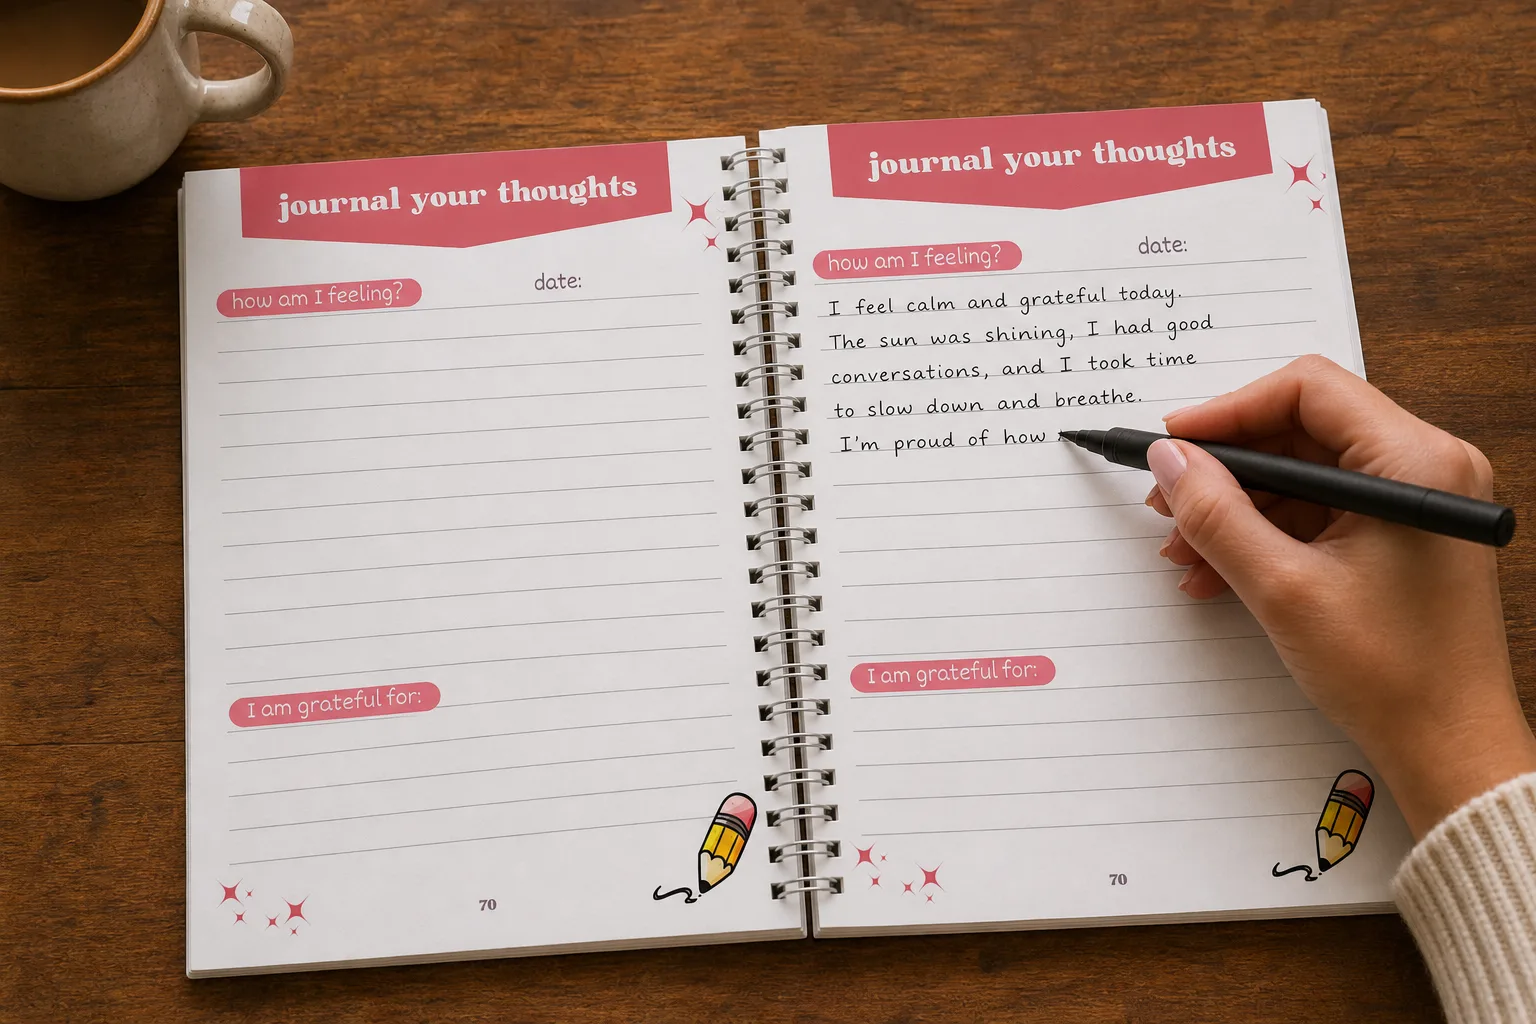 journal your thoughts
how am I feeling?
date:
I am grateful for:
70
journal your thoughts
how am I feeling?
date:
I feel calm and grateful today.
The sun was shining, I had good
conversations, and I took time
to slow down and breathe.
I'm proud of how
I am grateful for:
70